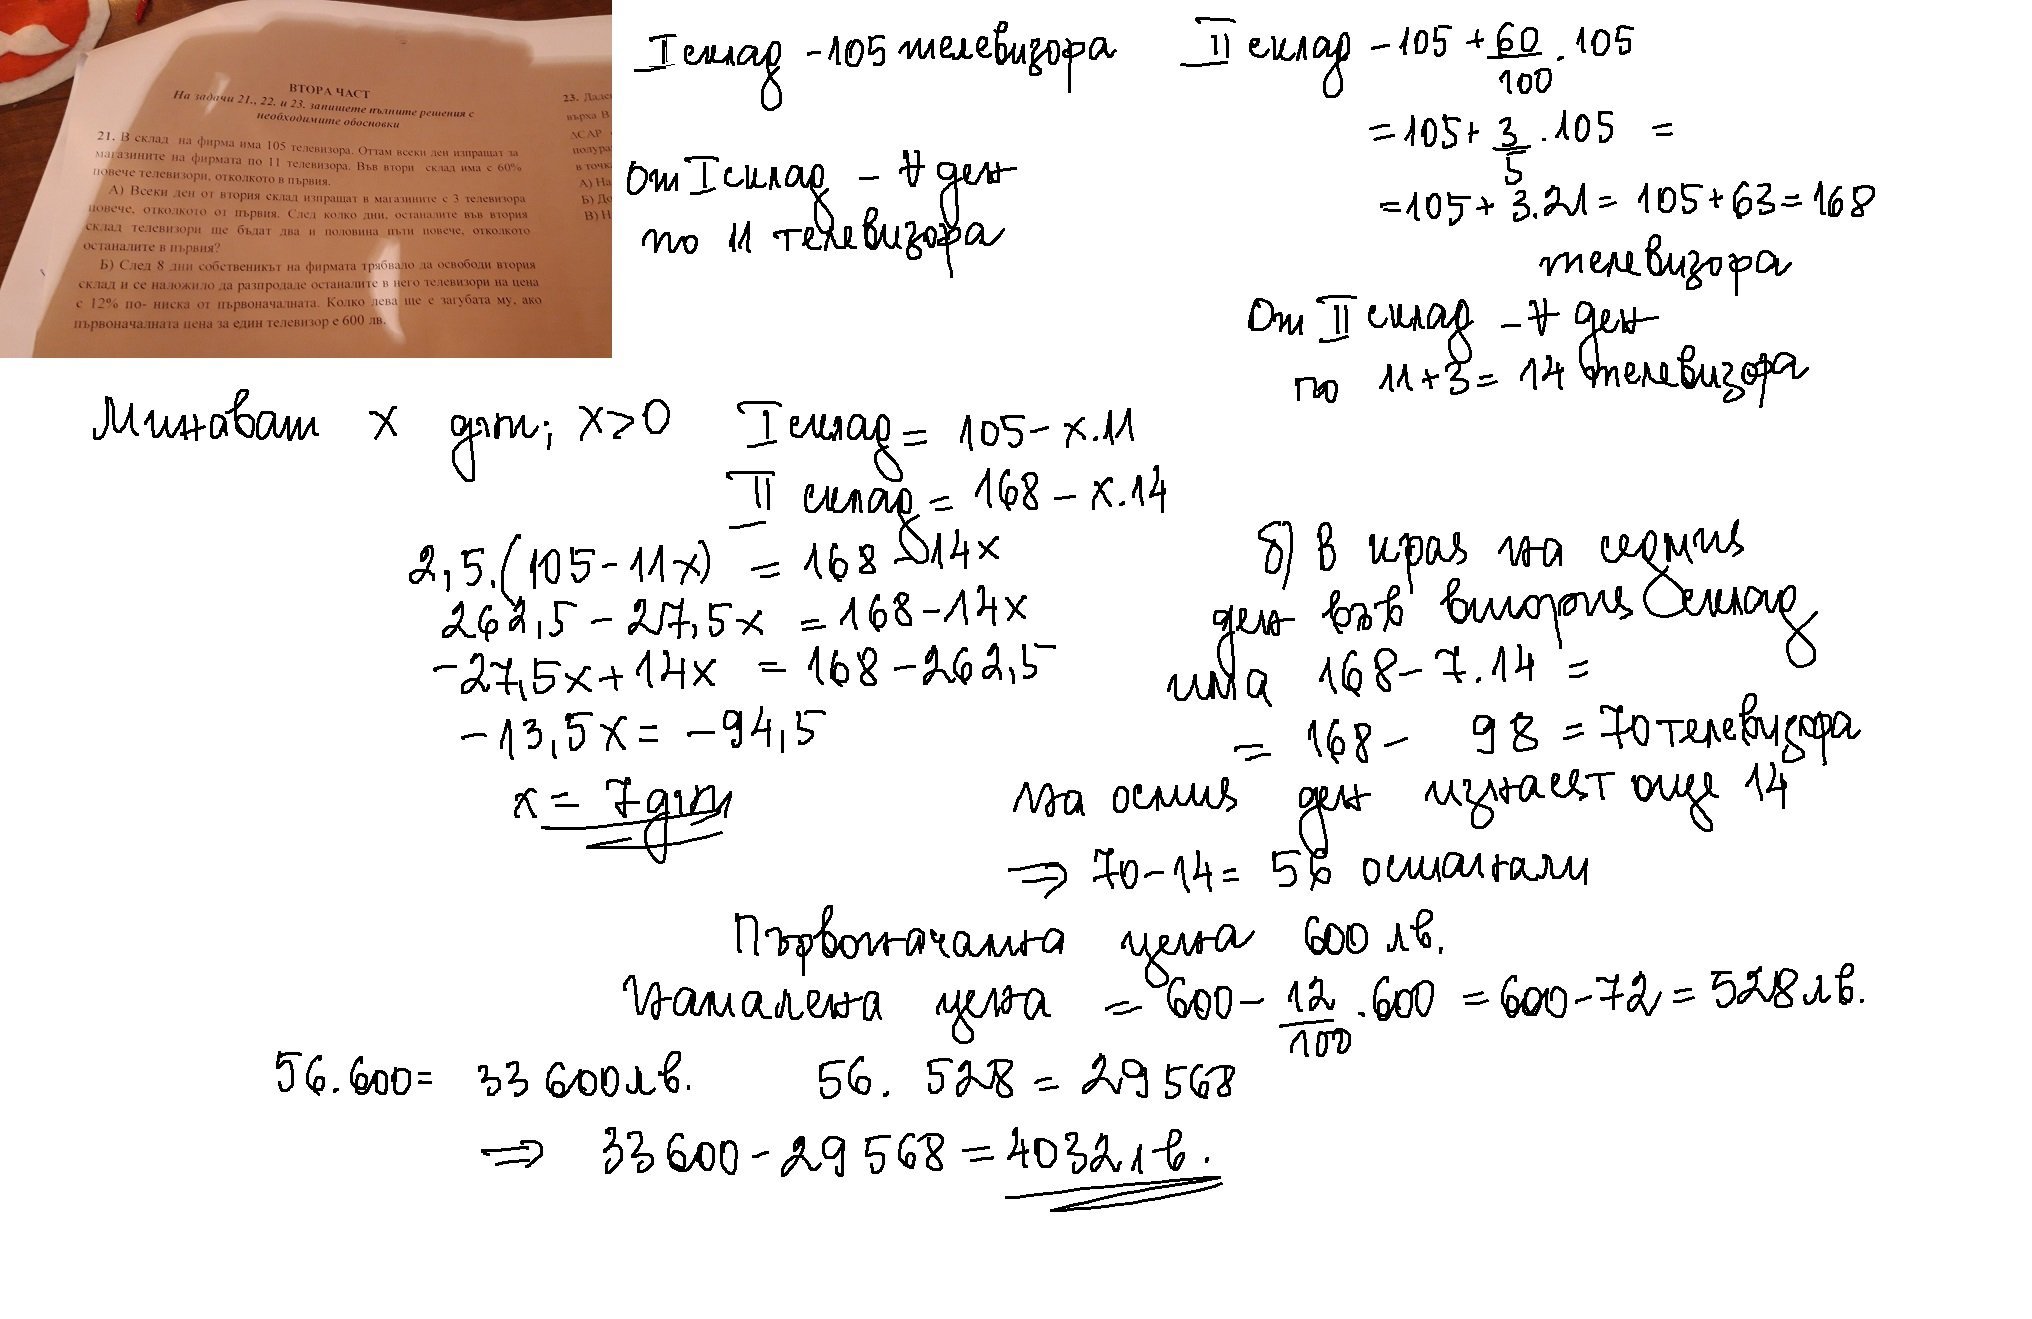 ВТОРА ЧАСТ
На задачи 21., 22. и 23. запишете пълните решения с
необходимите обосновки
21. В склад на фирма има 105 телевизора. Оттам всеки ден изпращат за
магазините на фирмата по 11 телевизора. Във втори склад има с 60%
повече телевизори, отколкото в първия.
А) Всеки ден от втория склад изпращат в магазините с 3 телевизора
повече, отколкото от първия. След колко дни, останалите във втория
склад телевизори ще бъдат два и половина пъти повече, отколкото
останалите в първия?
Б) След 8 дни собственикът на фирмата трябвало да освободи втория
склад и се наложило да разпродаде останалите в него телевизори на цена
с 12% по- ниска от първоначалната. Колко лева ще е загубата му, ако
първоначалната цена за един телевизор е 600 лв.
23. Даден
върха В
ΔCAP
в точк
А) На
Б) До
В) Н
I склад - 105 телевизора
От I склад - ∀ ден
по 11 телевизора
II склад - 105 + 60/100 . 105
= 105 + 3/5 . 105 =
= 105 + 3.21 = 105 + 63 = 168
телевизора
От II склад - ∀ ден
по 11 + 3 = 14 телевизора
Минават x дни; x > 0
I склад = 105 - x.11
II склад = 168 - x.14
2,5.(105 - 11x) = 168 - 14x
262,5 - 27,5x = 168 - 14x
-27,5x + 14x = 168 - 262,5
-13,5x = -94,5
x = 7 дни
б) В края на седмия
ден във втория склад
има 168 - 7.14 =
= 168 - 98 = 70 телевизора
На осмия ден изнасят още 14
⇒ 70 - 14 = 56 останали
Първоначална цена 600 лв.
Намалена цена = 600 - 12/100 . 600 = 600 - 72 = 528 лв.
56.600 = 33 600 лв. 56. 528 = 29 568
⇒ 33 600 - 29 568 = 4032 лв.